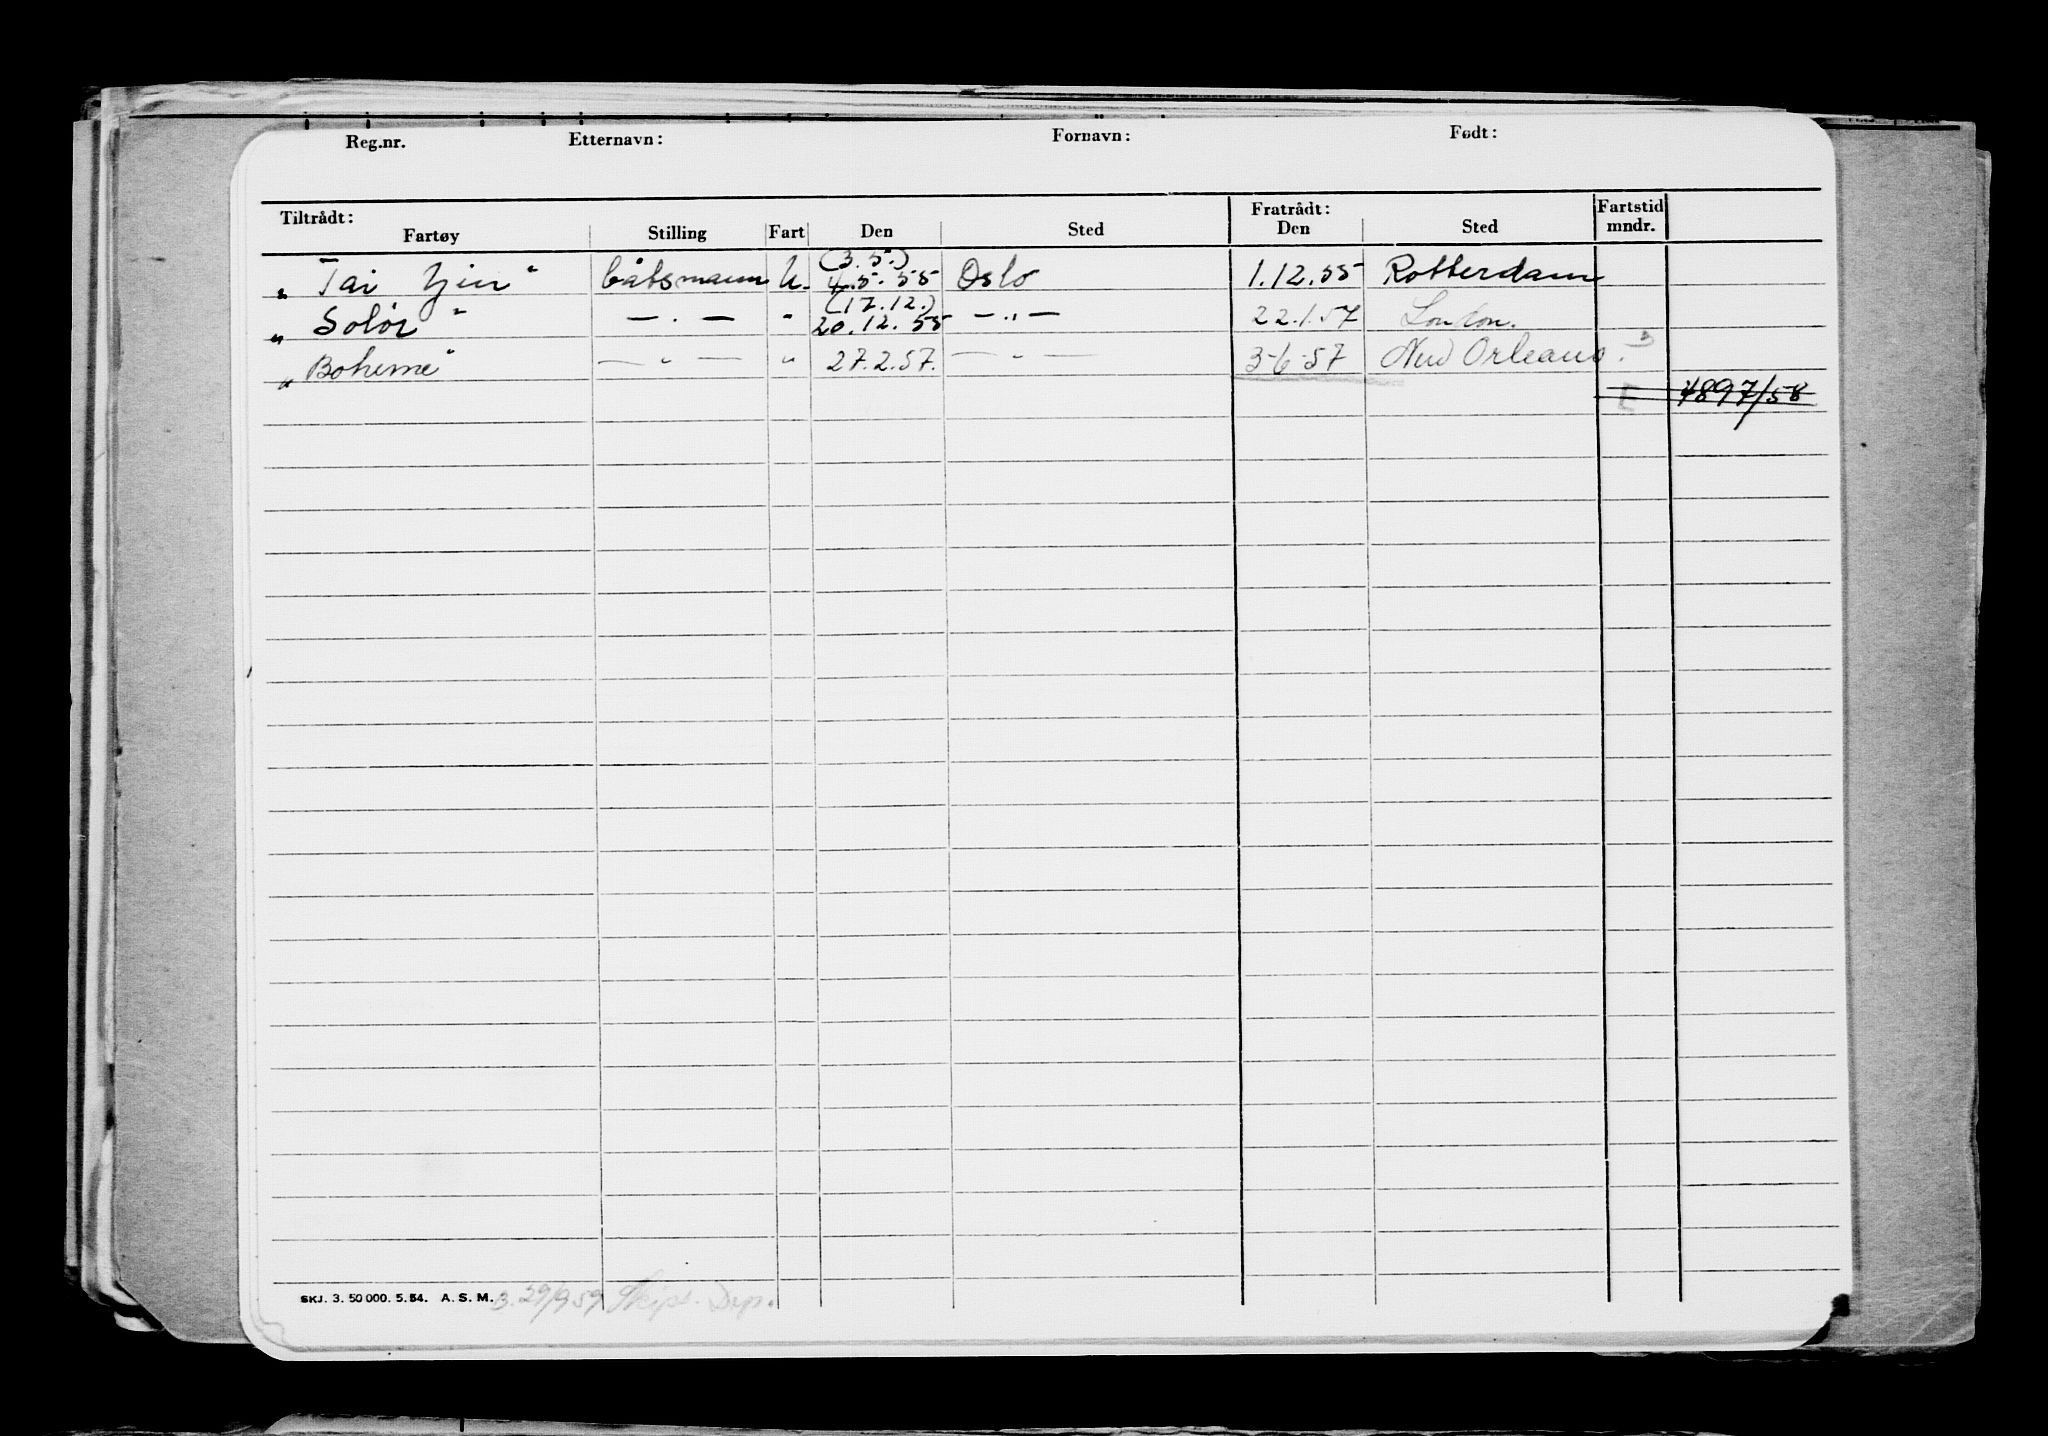 Reg.nr. Etternavn: Fornavn: Født:
Tiltrådt: Fratrådt: Fartstid
Fartøy Stilling Fart Den Sted Den Sted mndr.
(3.5.)
„ Tai Yin " båtsmann U. 4.5.55 Oslo 1.12.55 Rotterdam
(17.12.)
„ Solør " — . — " 20.12.55 — " — 22.1.57 London.
„ Boheme " — " — " 27.2.57. — " — 3-6-57 New Orleans
E 4897/58
SKJ. 3. 50 000. 5. 54. A. S. M. 3. 29/9 59 Skips. Dep.